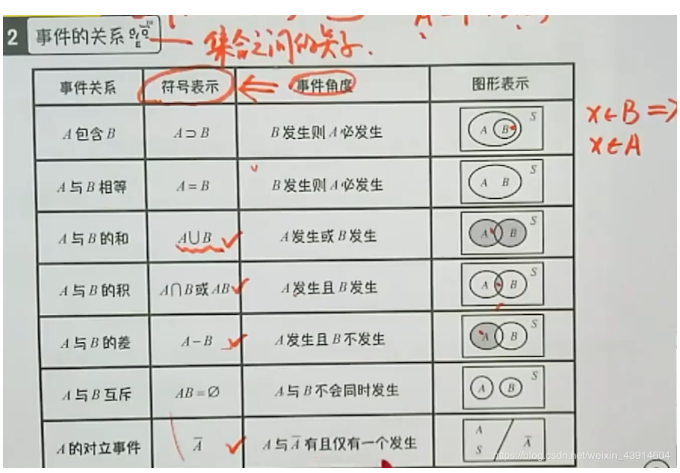 2 事件的关系
集合之间的关系.
事件关系 符号表示 事件角度 图形表示
A包含B A⊃B B发生则A必发生 A B S
x∈B ⇒
x∈A
A与B相等 A=B B发生则A必发生 A B S
A与B的和 A∪B A发生或B发生 A B S
A与B的积 A∩B或AB A发生且B发生 A B S
A与B的差 A-B A发生且B不发生 A B S
A与B互斥 AB=∅ A与B不会同时发生 A B S
A的对立事件 A̅ A与A̅有且仅有一个发生 A S A̅
https://blog.csdn.net/weixin_43914604